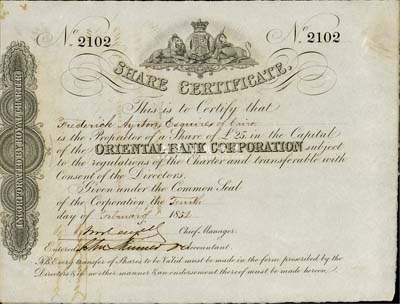 No. 2102
No. 2102
SHARE CERTIFICATE.
This is to Certify that
Frederick Ayrton Esquire of Cairo
is the Proprietor of a Share of £25. in the Capital
of the ORIENTAL BANK CORPORATION subject
to the regulations of the Charter and transferable with
Consent of the Directors.
Given under the Common Seal
of the Corporation the Fourth
day of February 1852
Chief Manager.
Entered Accountant.
N.B. Every transfer of Shares to be Valid must be made in the form prescribed by the
Directors & in no other manner & an endorsement thereof must be made hereon.
INCORPORATED BY ROYAL CHARTER